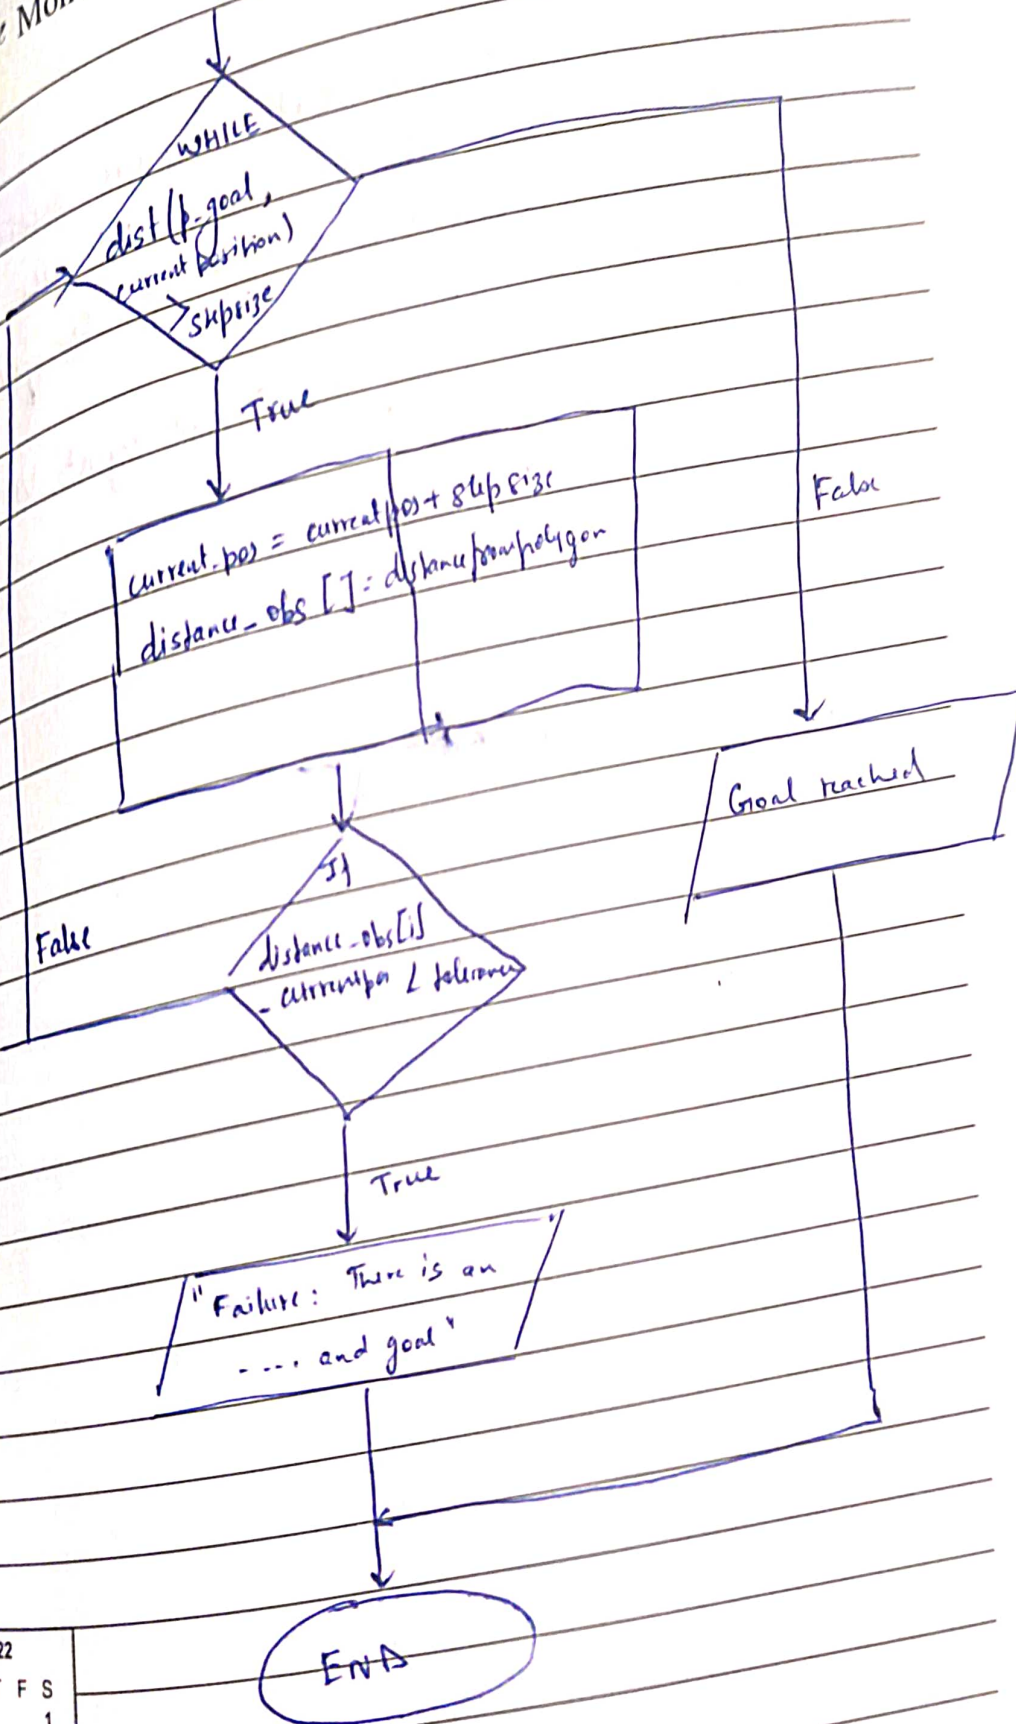 WHILE
dist(p_goal,
current position)
> stepsize
True
False
current_pos = current pos + step size
distance_obs [ ] = distancefrompolygon
Goal reached
False
If
distance_obs[i]
- currentpos < tolerance
True
"Failure: There is an
- .... and goal"
END
22
F S
1